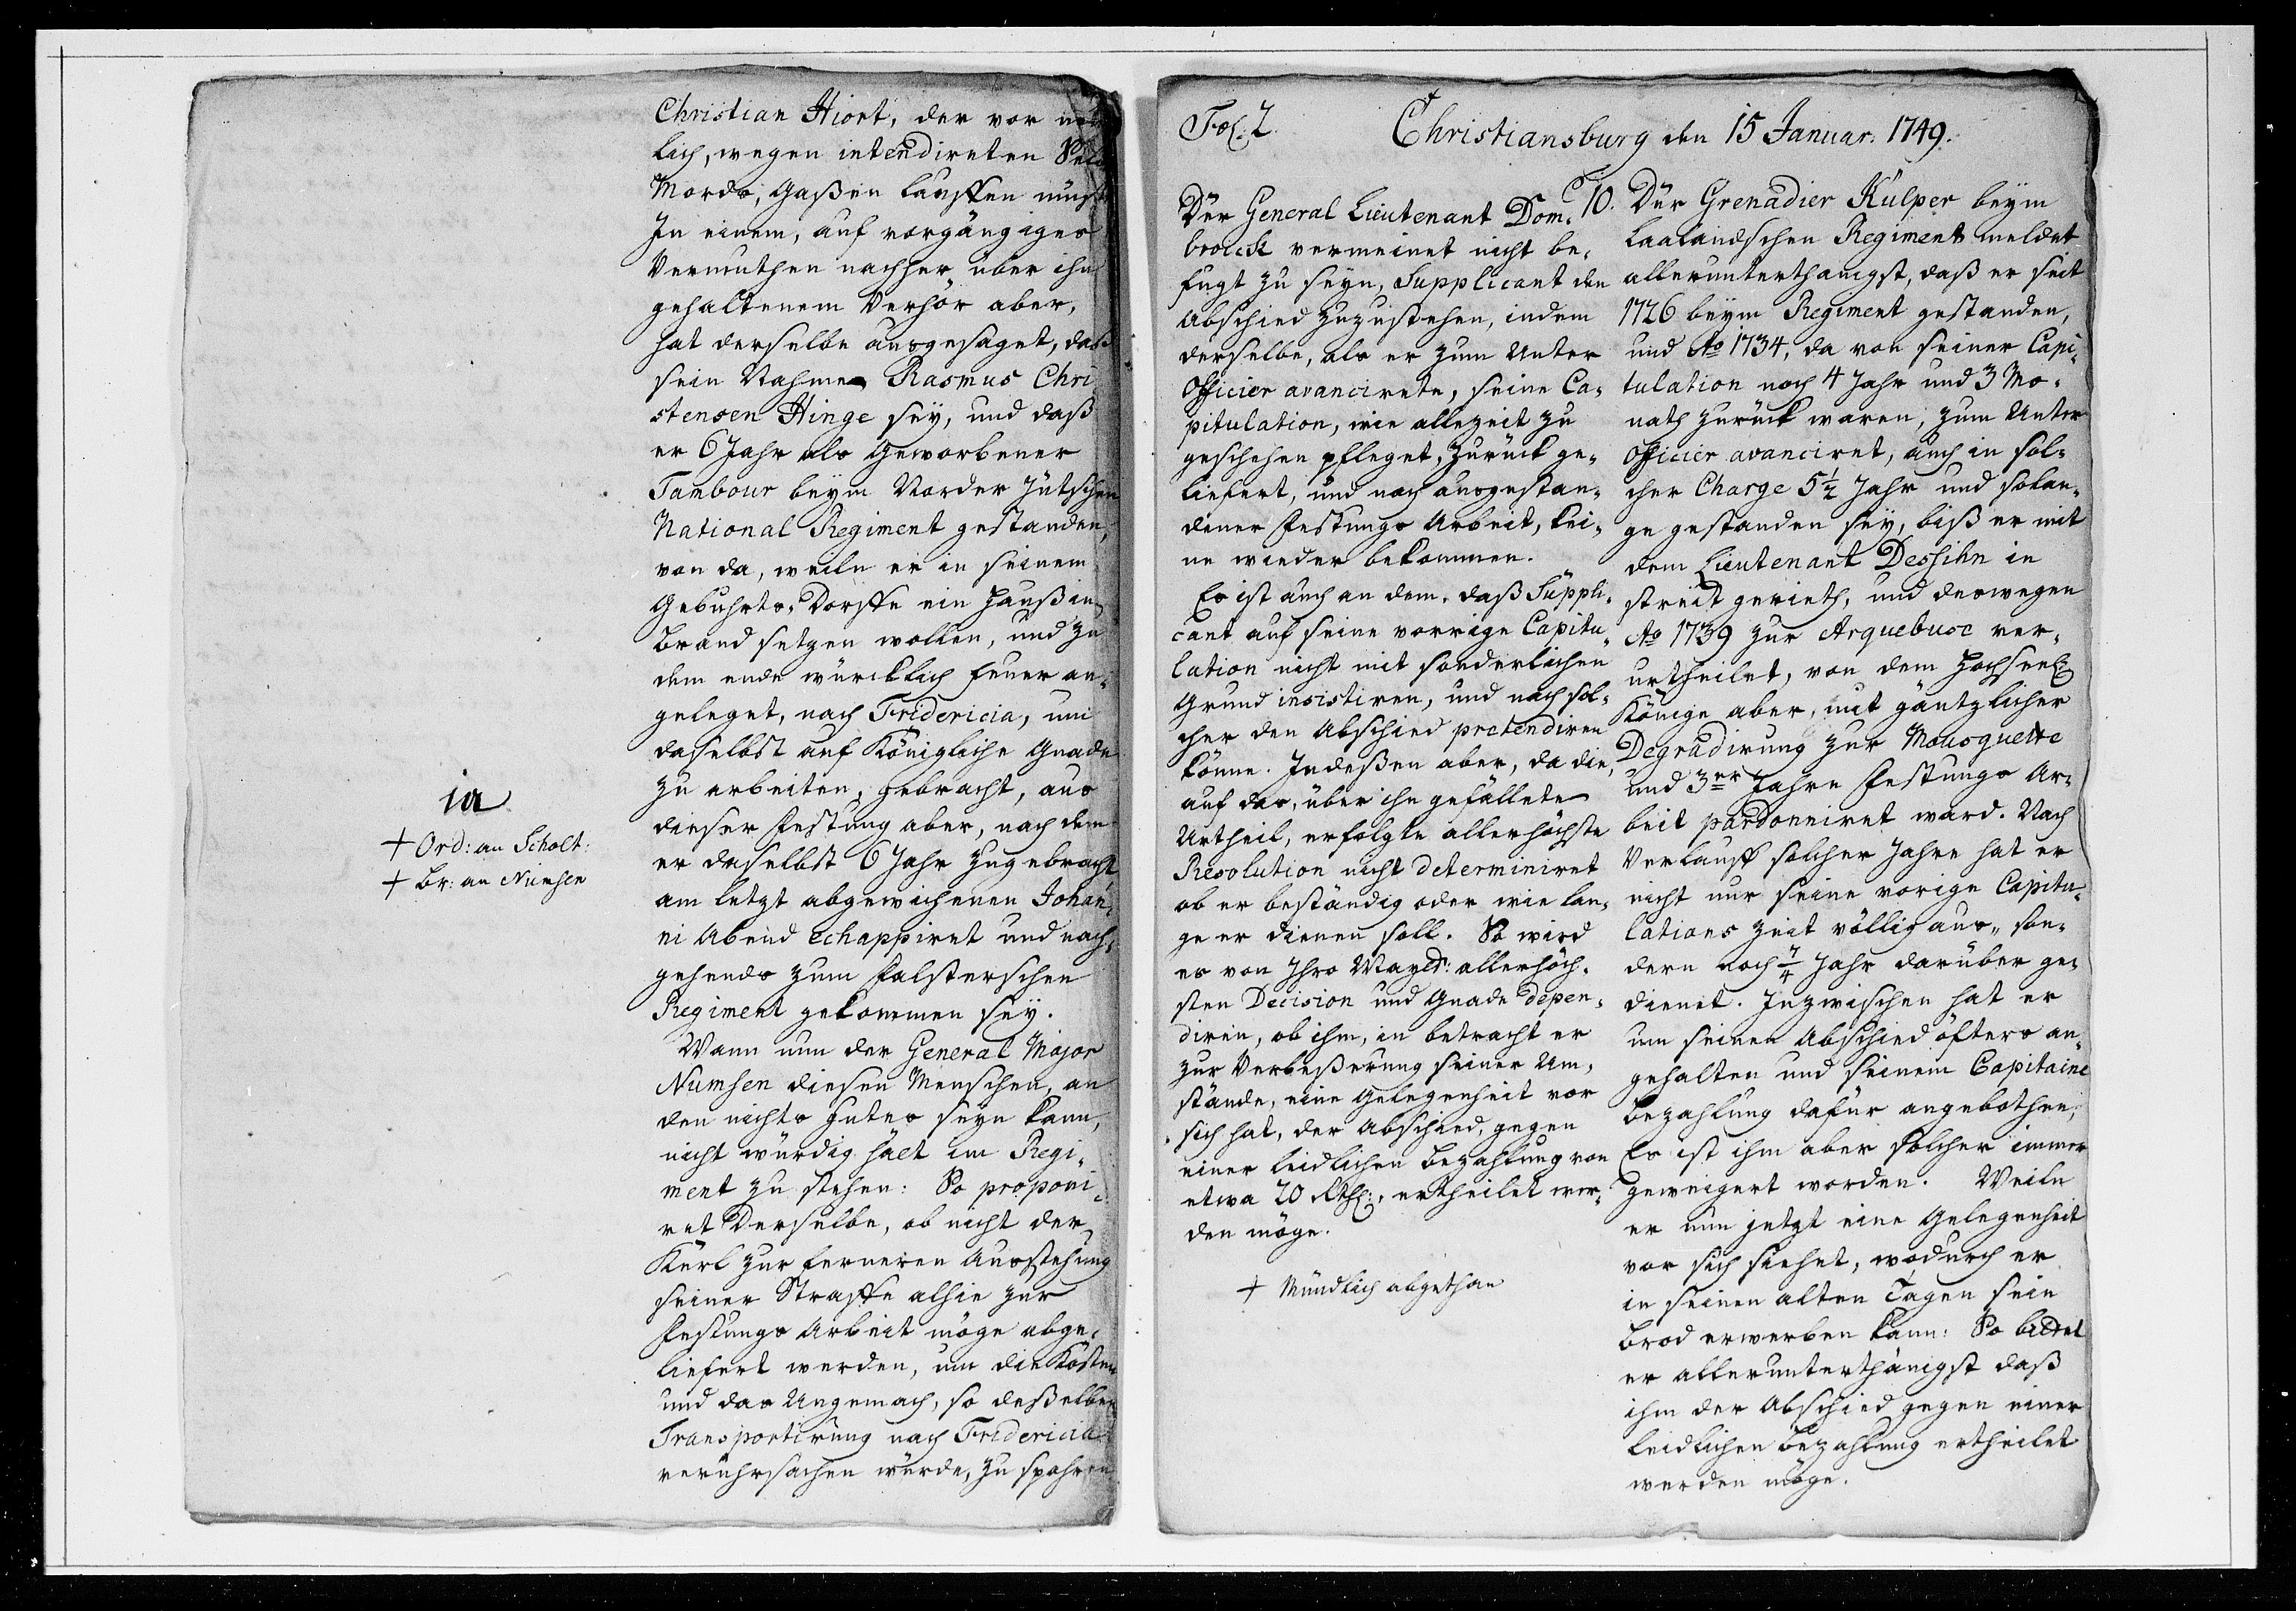 Christian Hiort, der vor
lich, wegen intendireten
Mords, Gaßen lauffen müst
In einem, auf vorgängiges
Vermuthen nachher über ihn
gehaltenem Verhör aber,
hat derselbe ausgesaget, daß
sein Nahme Rasmus Chri
stensen Hinge seÿ, und daß
er 6 Jahr als Geworbener
Tambour beÿm Norder Jütschen
National Regiment gestanden,
von da, weiln er in seinem
Gebuhrts-Dorffe ein Hauß in
Brand setzen wollen, und zu
dem ende würcklich Feuer an-
geleget, nach Fridericia, um
daselbst auf Königliche Gnade
zu arbeiten, gebracht, aus
dieser Festung aber, nach dem
er daselbst 6 Jahr zugebracht
am letzt abgewichenen Johan-
ni Abend echappiret und nach-
gehends zum Falsterschen
Regiment gekommen seÿ.
Wann nun der General Major
Numsen diesen Menschen, an
den nichts gutes seÿn kann,
nicht würdig hält im Regi-
ment zu stehen: So proponi-
ret Derselbe, ob nicht der
Kerl zur ferneren Ausstehung
seiner Straffe alhie zur
Festungs Arbeit möge abge-
liefert werden, um die Kosten
und das Ungemach, so deßelben
Transportirung nach Fridericia
veruhrsachen würde, zu spahren
ia
+ Ord: an Scholt:
+ Br: an Numsen
Fol. 2.
Christiansburg den 15 Januar. 1749.
Der General Lieutenant Dom-
brock vermeinet nicht be-
fugt zu seÿn, Supplicant den
Abschied zuzustehen, indem
derselbe, als er zum Unter
Officier avancirete, seine Ca-
pitulation, wie allezeit zu
geschehen pfleget, zurück ge-
liefert, und nach ausgestan-
dener Festungs Arbeit, kei-
ne wieder bekommen.
Es ist auch an dem, daß Suppli-
cant auf seine vorrige Capitu-
lation nicht mit sonderlichen
Grund insistiren, und nach sol-
cher den Abschied pretendiren
könne. Indeßen aber, da die,
auf das, über ihn gefällete
Urtheil, erfolgte allerhöchste
Resolution nicht determiniret
ob er beständig oder wie lan-
ge er dienen soll. So wird
es von Ihro Mayest: allerhöch-
sten Decision und Gnade depen-
diren, ob ihm, in betracht er
zur Verbeßerung seiner Um-
stände, eine Gelegenheit vor
sich hat, der Abschied, gegen
einer leidlichen bezahlung von
etwa 20 Rthl:, ertheilet wer-
den möge.
+ Mündlich abgethan
10. Der Grenadier Külper beÿm
Laalandschen Regiment meldet
allerunterthänigst, daß er seit
1726 beÿm Regiment gestanden,
und Ao 1734, da von seiner Capi-
tulation noch 4 Jahr und 3 Mo-
nath zurück waren, zum Unter
Officier avanciret, auch in sol-
cher Charge 5 1/2 Jahr und solan-
ge gestanden seÿ, biß er mit
dem Lieutenant Dessihn in
streit gerieth, und deswegen
Ao 1739 zur Arquebuse ver-
urtheilet, von dem Hochseel:
Könige aber, mit gäntzlicher
Degradirung zur Mousquette
und 3er Jahre Festungs Ar-
beit pardonniret ward. Nach
Verlauff solcher Jahre hat er
nicht nur seine vorige Capitu-
lations Zeit völlig aus- son-
dern noch 7/4 Jahr darüber ge-
dienet. Inzwischen hat er
um seinen Abschied öfters an-
gehalten und seinem Capitaine
bezahlung dafür angebothen,
Es ist ihm aber solcher immer
geweigert worden. Weiln
er nun jetzt eine Gelegenheit
vor sich siehet, wodurch er
in seinen alten Tagen sein
Brod erwerben kann: So bittet
er allerunterthänigst daß
ihm der Abschied gegen einer
leidlichen bezahlung ertheilet
werden möge.